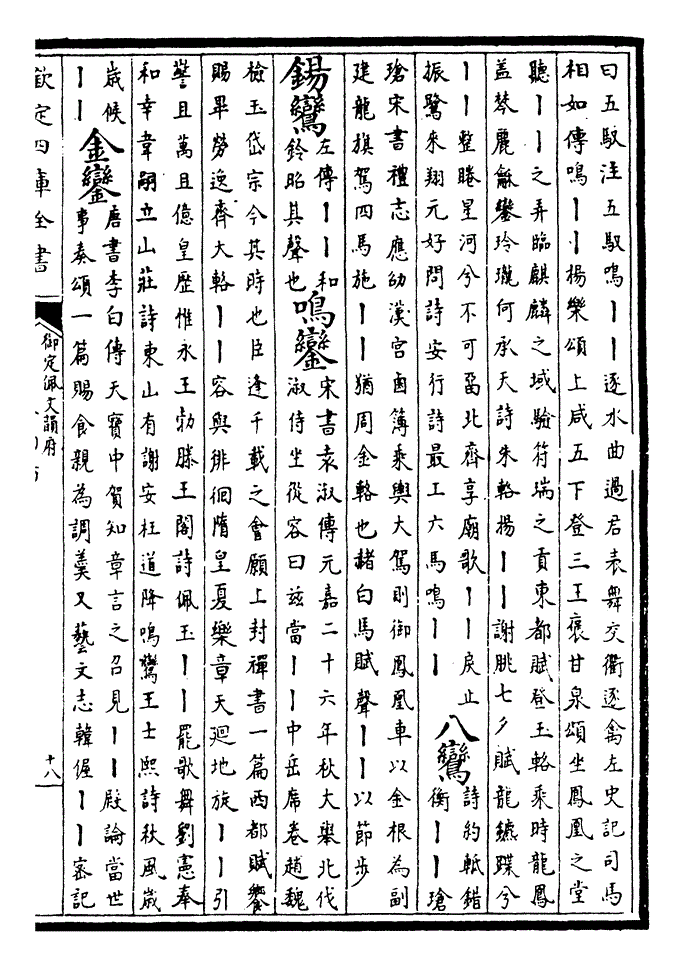 曰五馭注五馭鳴丨丨逐水曲過君表舞交衢逐禽左史記司馬
相如傳鳴丨丨揚樂頌上咸五下登三王襃甘泉頌坐鳳凰之堂
聽丨丨之弄臨麒麟之域驗符瑞之貢東都賦登玉輅乘時龍鳳
盖棽麗龢鑾玲瓏何承天詩朱輅揚丨丨謝朓七夕賦龍鑣蹀兮
丨丨整睠星河兮不可畱北齊享廟歌丨丨戾止
振鷺來翔元好問詩安行詩最工六馬鳴丨丨
八鸞
詩約軝錯
衡丨丨瑲
瑲宋書禮志應劭漢宫鹵簿乘輿大駕則御鳳凰車以金根為副
建龍旗駕四馬施丨丨猶周金輅也赭白馬賦聲丨丨以節步
錫鸞
左傳丨丨和
鈴昭其聲也
鳴鑾
宋書袁淑傳元嘉二十六年秋大舉北伐
淑侍坐從容曰兹當丨丨中岳席卷趙魏
檢玉岱宗今其時也臣逢千載之會願上封禪書一篇西都賦饗
賜畢勞逸齊大輅丨丨容與徘徊隋皇夏樂章天廻地旋丨丨引
警且萬且億皇歷惟永王勃滕王閣詩佩玉丨丨罷歌舞劉憲奉
和幸韋嗣立山莊詩東山有謝安枉道降鳴鸞王士熙詩秋風歲
歲候
丨丨
金鑾
唐書李白傳天寶中賀知章言之召見丨丨殿論當世
事奏頌一篇賜食親為調羹又藝文志韓偓丨丨密記
欽定四庫全書
御定佩文韻府
十八